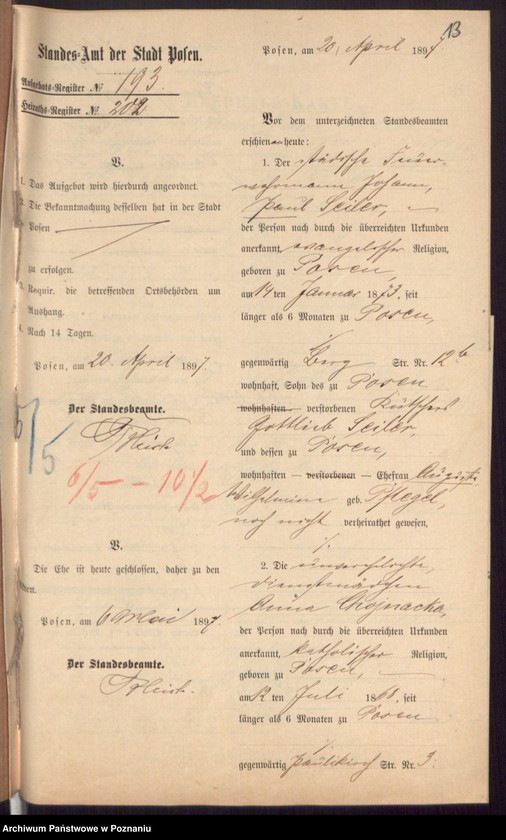 13
Standes-Amt der Stadt Posen.
Aufgebots-Register № 193.
Heiraths-Register № 202
V.
1. Das Aufgebot wird hierdurch angeordnet.
2. Die Bekanntmachung desselben hat in der Stadt
Posen
zu erfolgen.
3. Requir. die betreffenden Ortsbehörden um
Aushang.
4. Nach 14 Tagen.
Posen, am 20. April 1897.
Der Standesbeamte.
5/5
6/5 - 10 1/2
V.
Die Ehe ist heute geschlossen, daher zu den
Posen, am 6 Mai 1897.
Der Standesbeamte.
Posen, am 20. April 1897
Vor dem unterzeichneten Standesbeamten
erschienen heute:
1. Der städtische Feuer-
wehrmann Johann,
Paul Seiler,
der Person nach durch die überreichten Urkunden
anerkannt, evangelischer Religion,
geboren zu Posen,
am 14 ten Januar 1873, seit
länger als 6 Monaten zu Posen,
gegenwärtig Berg Str. Nr. 12b
wohnhaft, Sohn des zu Posen
wohnhaften verstorbenen Kutschers
Gottlieb Seiler,
und dessen zu Posen,
wohnhaften — verstorbenen — Ehefrau Auguste
Wilhelmine geb. Pflegel,
noch nicht verheirathet gewesen,
2. Die unverehelichte,
Dienstmädchen
Anna Chojnacka,
der Person nach durch die überreichten Urkunden
anerkannt, katholischer Religion,
geboren zu Posen,
am 12 ten Juli 1868, seit
länger als 6 Monaten zu Posen
gegenwärtig Paulikirch Str. Nr. 3.
Archiwum Państwowe w Poznaniu